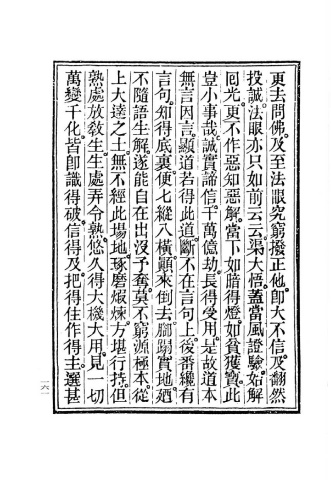 更去問佛。及至法眼究窮撥正他。卽大不信。及翻然
投誠。法眼亦只如前云云渠大悟。蓋當風證驗始解
囘光。更不作惡知惡解。當下如暗得燈。如貧獲寶。此
豈小事哉。誠實諦信。千萬億劫。長得受用。是故道本
無言因言顯道。若得此道。斷不在言句上。後番纔有
言句。知得底裏。便七縱八橫。顚來倒去。脚蹋實地。廼
不隨語生解。遂能自在出沒予奪莫不窮源極本。從
上大達之士。無不經此場地。琢磨煆煉。方堪行持。但
熟處放敎生。生處弄令熟。悠久得大機大用。見一切
萬變千化。皆卽識得破信得及把得住作得主。選甚
一六一